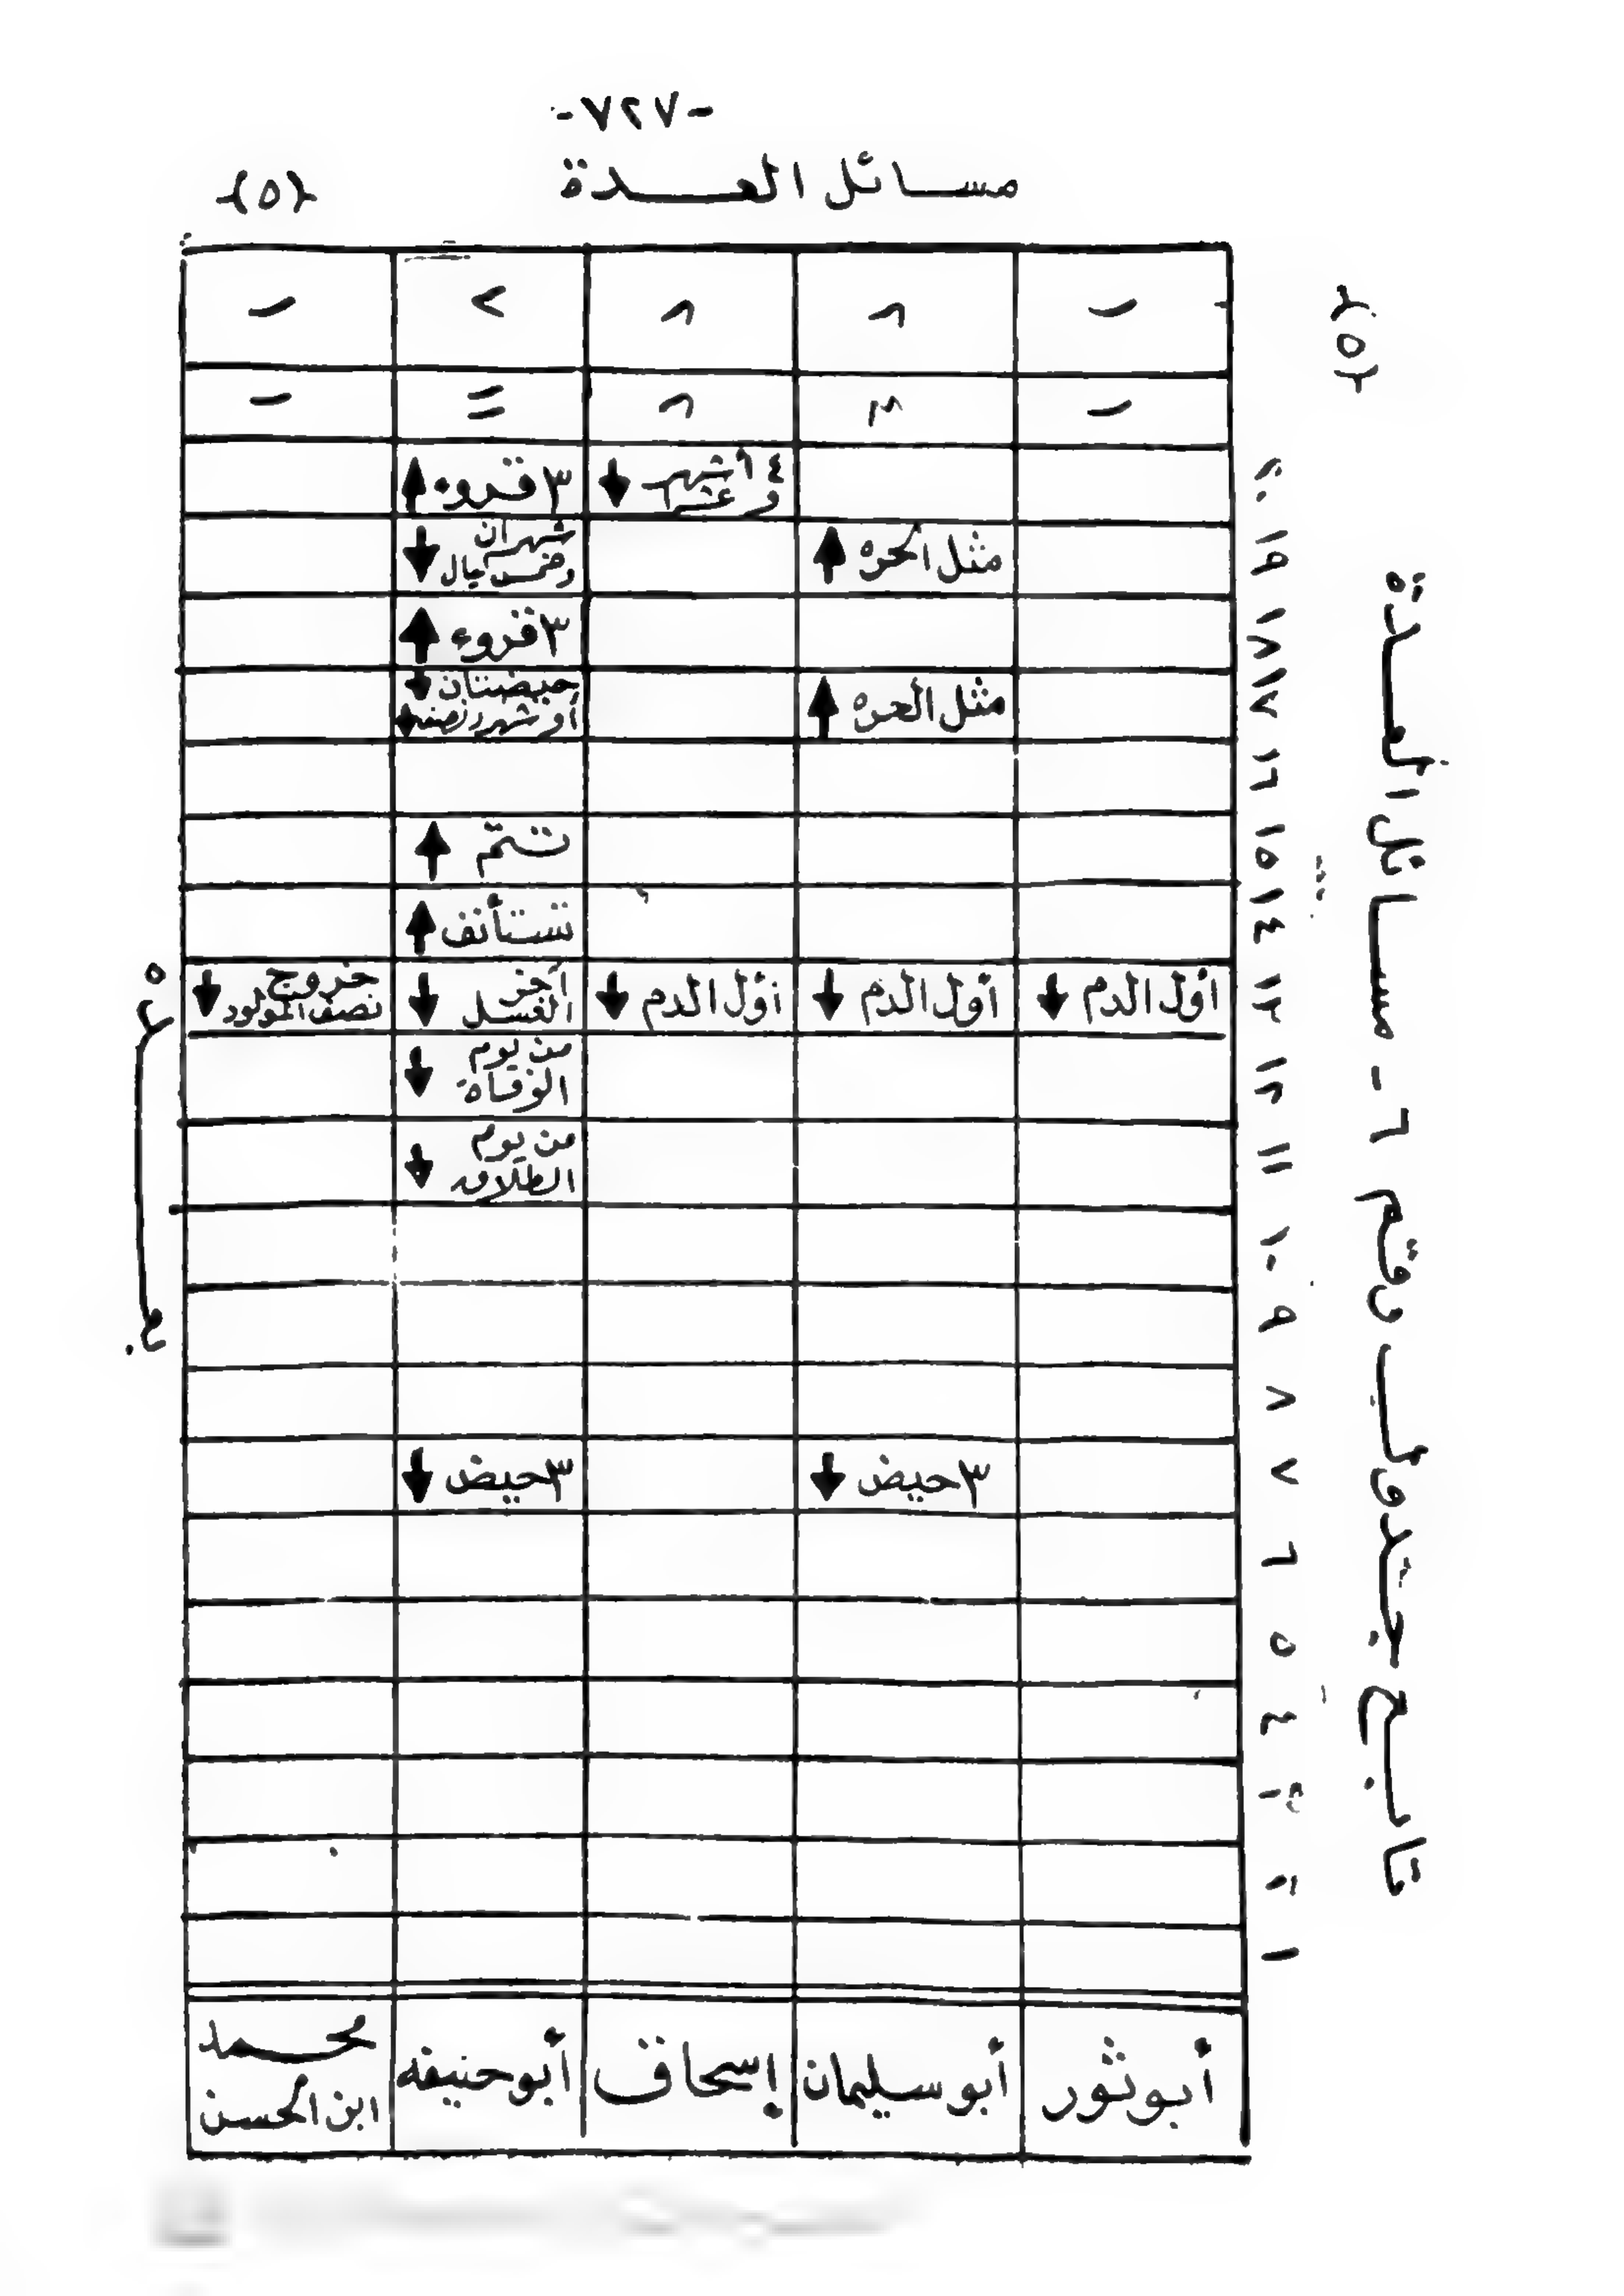 -٧٢٧-
مسائل العدة
{٥}
{٥}
تابع جدول رقم ٦ - مسائل العدة
٢٠ ٣ قروء ↑ ٤ أشهر وعشر ↓
١٩ مثل الحره ↑ شهران وخمس ليال ↓
١٨ ٣ قروء ↑
١٧ مثل الحره ↑ حيضتان ↓ أو شهر ونصف ↓
١٦
١٥ تتم ↑
١٤ تستأنف ↑
١٣ أول الدم ↓ أول الدم ↓ أول الدم ↓ آخر الغسل ↓ خروج نصف المولود ↓
١٢ من يوم الوفاة ↓
١١ من يوم الطلاق ↓
١٠
٩
٨
٧ ٣ حيض ↓ ٣ حيض ↓
٦
٥
٤
٣
٢
١
أبو ثور
أبو سليمان
إسحاق
أبو حنيفه
محمد
ابن الحسن